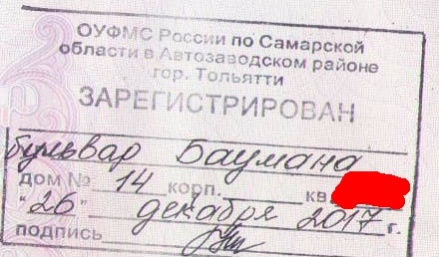 ОУФМС России по Самарской
области в Автозаводском районе
гор. Тольятти
ЗАРЕГИСТРИРОВАН
бульвар Баумана
дом № 14 корп. кв
"26" декабря 2017 г.
подпись